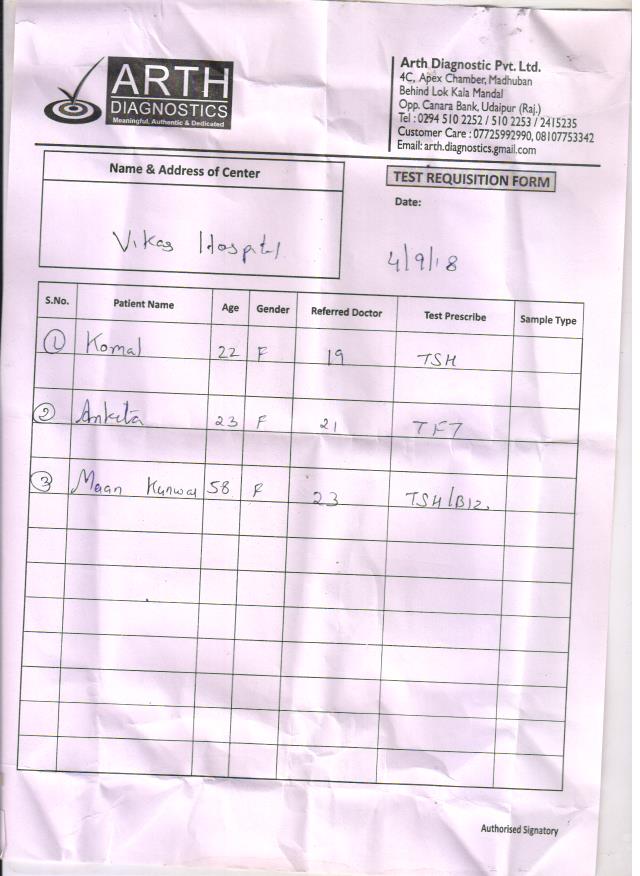 ARTH
DIAGNOSTICS
Meaningful, Authentic & Dedicated
Arth Diagnostic Pvt. Ltd.
4C, Apex Chamber, Madhuban
Behind Lok Kala Mandal
Opp. Canara Bank, Udaipur (Raj.)
Tel : 0294 510 2252 / 510 2253 / 2415235
Customer Care : 07725992990, 08107753342
Email: arth.diagnostics.gmail.com
Name & Address of Center
TEST REQUISITION FORM
Date:
Vikas Hospital
4/9/18
S.No. Patient Name Age Gender Referred Doctor Test Prescribe Sample Type
1 Komal 22 F 19 TSH
2 Ankita 23 F 21 TFT
3 Maan Kunwar 58 F 23 TSH/B12.
Authorised Signatory